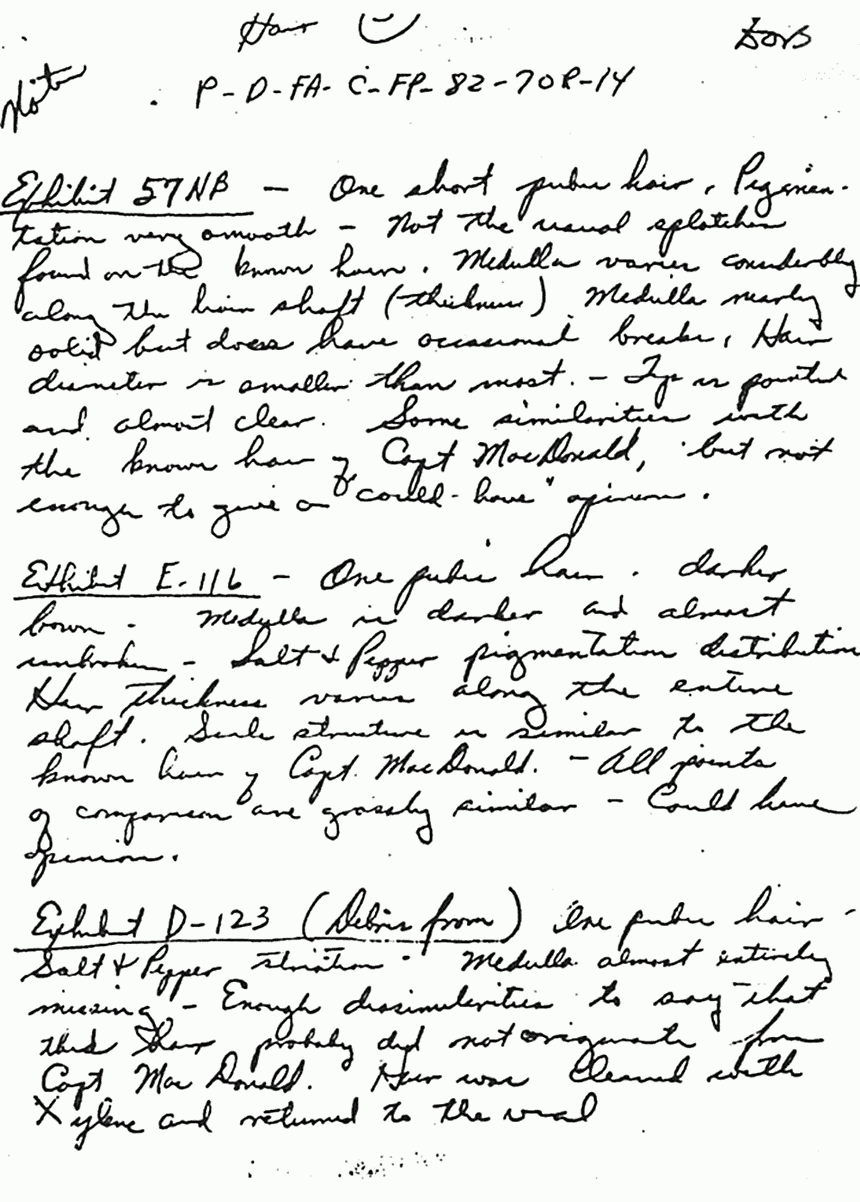 Hair
Note
P-D-FA-C-FP-82-70R-14
Exhibit 57NB — One short pubic hair. Pigmen-
tation very smooth — Not the usual splotches
found on the known hair. Medulla varies considerbly
along the hair shaft (thickness) Medulla nearly
solid but does have occasional breaks, Hair
diameter is smaller than most. - Tip is pointed
and almost clear. Some similarities with
the known hair of Capt MacDonald, but not
enough to give a "could-have" opinion.
Exhibit E-116 - One pubic hair. darker
brown - Medulla is darker and almost
unbroken - Salt & Pepper pigmentation distribution
Hair thickness varies along the entire
shaft. Scale structure is similar to the
known hair of Capt. MacDonald. - All points
of comparison are grossly similar - Could have
opinion.
Exhibit D-123 (Debris from) One pubic hair -
Salt & Pepper striation - Medulla almost entirely
missing - Enough dissimilarities to say that
this hair probaly did not originate from
Capt MacDonald. Hair was cleaned with
Xylene and returned to the vial